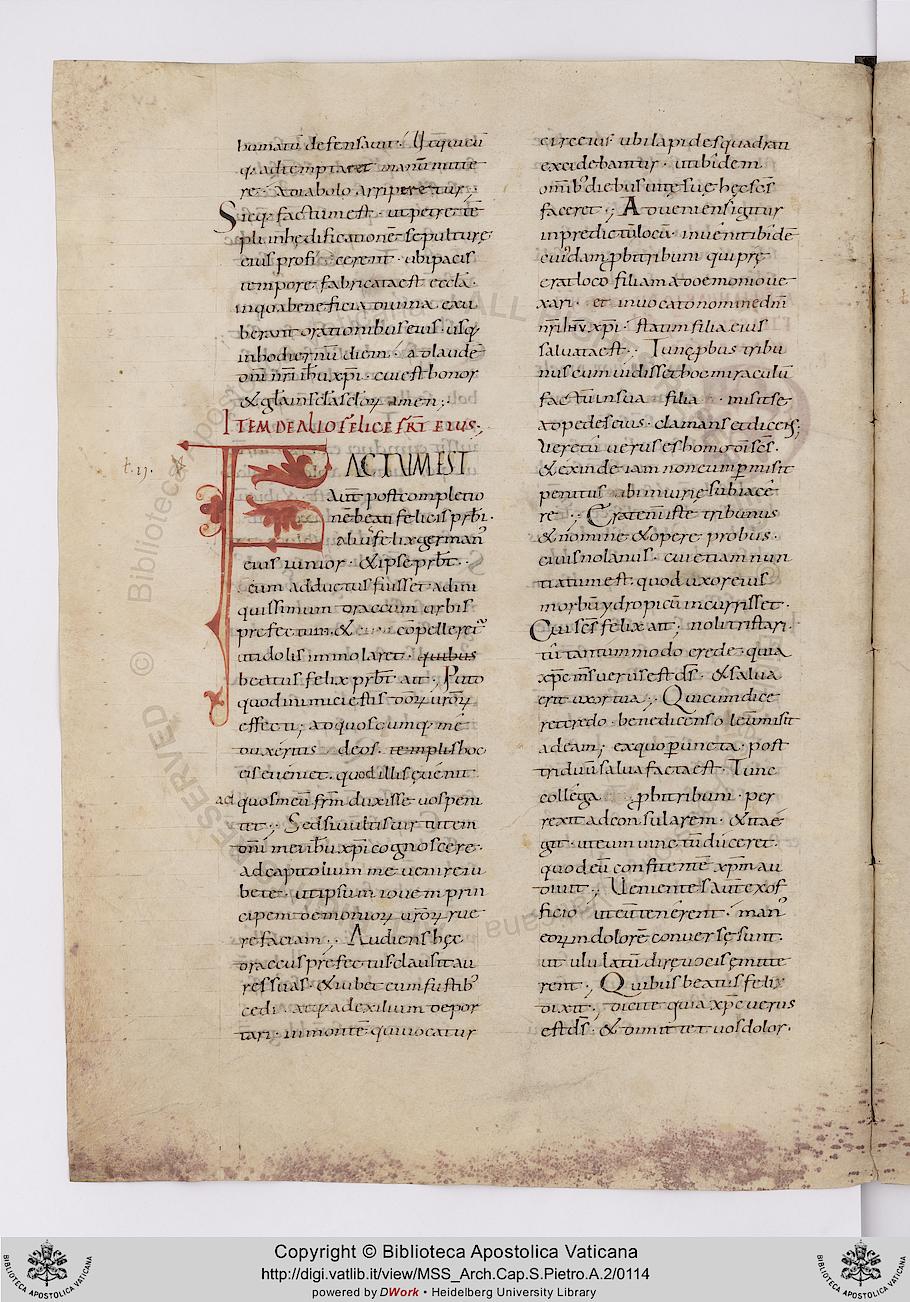 humatū defensavit· Utq̄ quicū
q; adtemptaret manū mitte
re· a diabolo arriperetur;
Sicq; factum est· ut petre tē
pli inhędificationē sepulturę
eius proficerent· ubi pacis
tempore fabricata est eccla·
in qua beneficia divina exu
berant orationibus eius· usq;
in hodiernū diem· ad laudē
dn̄i nr̄i ihu xp̄i· cui est honor
& gl̄a in scl̄a scl̄oꝝ amen;
ITEM DE ALIO FELICE FRT̄ EIUS;
t. ij.
FACTUM EST
Aut̄ post completio
nē beati felicis prb̄i·
alius felix germanꝰ
eius iunior· & ipse prb̄t·
cum adductus fuisset ad ini
quissimum draccum urbis
prefectum· & compelleretᷣ
ut idolis immolaret·
beatus felix prb̄t ait; Puto
quod inimici estis dōꝝ urōꝝ
effecti; ad quoscumq; me
duxeritis deos· hoc
eis eveniet· quod illis evenit
ad quos meū frm̄ duxisse vos peni
tet; Sed si vultis virtutem
dn̄i mei ihu xp̄i cognoscere·
ad capitolium me venire iu
bete· ut ipsum iovem prin
cipem demonioꝝ urōꝝ rue
re faciam; Audiens hęc
draccus prefectus clausit au
res suas· & iubet eum fustib;
cedi atq; ad exilium depor
tari· in monte· qui vocatur
circeius· ubi lapides quadrati
excidebantur· ut ibidem
omīb; diebus vitę suę hęc scs̄
faceret; Adveniens igitur
in predictū locū· invenit ibidē
cuiusdam prb̄i tribuni qui prę
erat loco filiam a demonio ve
xari· et invocato nomine dn̄i
nr̄i ihu xp̄i· statim filia eius
salvata est; Tunc probus tribu
nus cum vidisset hoc miraculū
factū in sua filia· misit se
ad pedes eius· clamans et dicens;
Vere tu verus es homo dī scs̄·
& exinde iam non eum permisit
penitus ab iniurię subiacē
re; Erat enī iste tribunus
& nomine & opere probus·
civis nolanus· cui etiam nun
tiatum est· quod uxor eius
morbū ydropicū incurrisset·
Cui scs̄ felix ait; noli tristari·
tu tantummodo crede· quia
xp̄c ms̄ verus est ds̄· & salva
erit uxor tua; Qui cum dice
ret credo· benedicens oleū misit
ad eam; ex quo peruncta· post
triduū salva facta est· Tunc
collega prb̄i tribuni· per
rexit ad consularem· & ita e
git· ut eum vinctū duceret·
quod eū confitentē xp̄m au
divit; Venientes aut̄ ex of
ficio ut eū tenerent· manꝰ
eoꝝ in dolorē conversę sunt·
ut ululatū dirę vocis emitte
rent; Quibus beatus felix
dixit; dicite quia xp̄c verus
est ds̄· & dimittet vos dolor·
Copyright © Biblioteca Apostolica Vaticana
http://digi.vatlib.it/view/MSS_Arch.Cap.S.Pietro.A.2/0114
powered by DWork • Heidelberg University Library
BIBLIOTECA APOSTOLICA VATICANA
BIBLIOTECA APOSTOLICA VATICANA